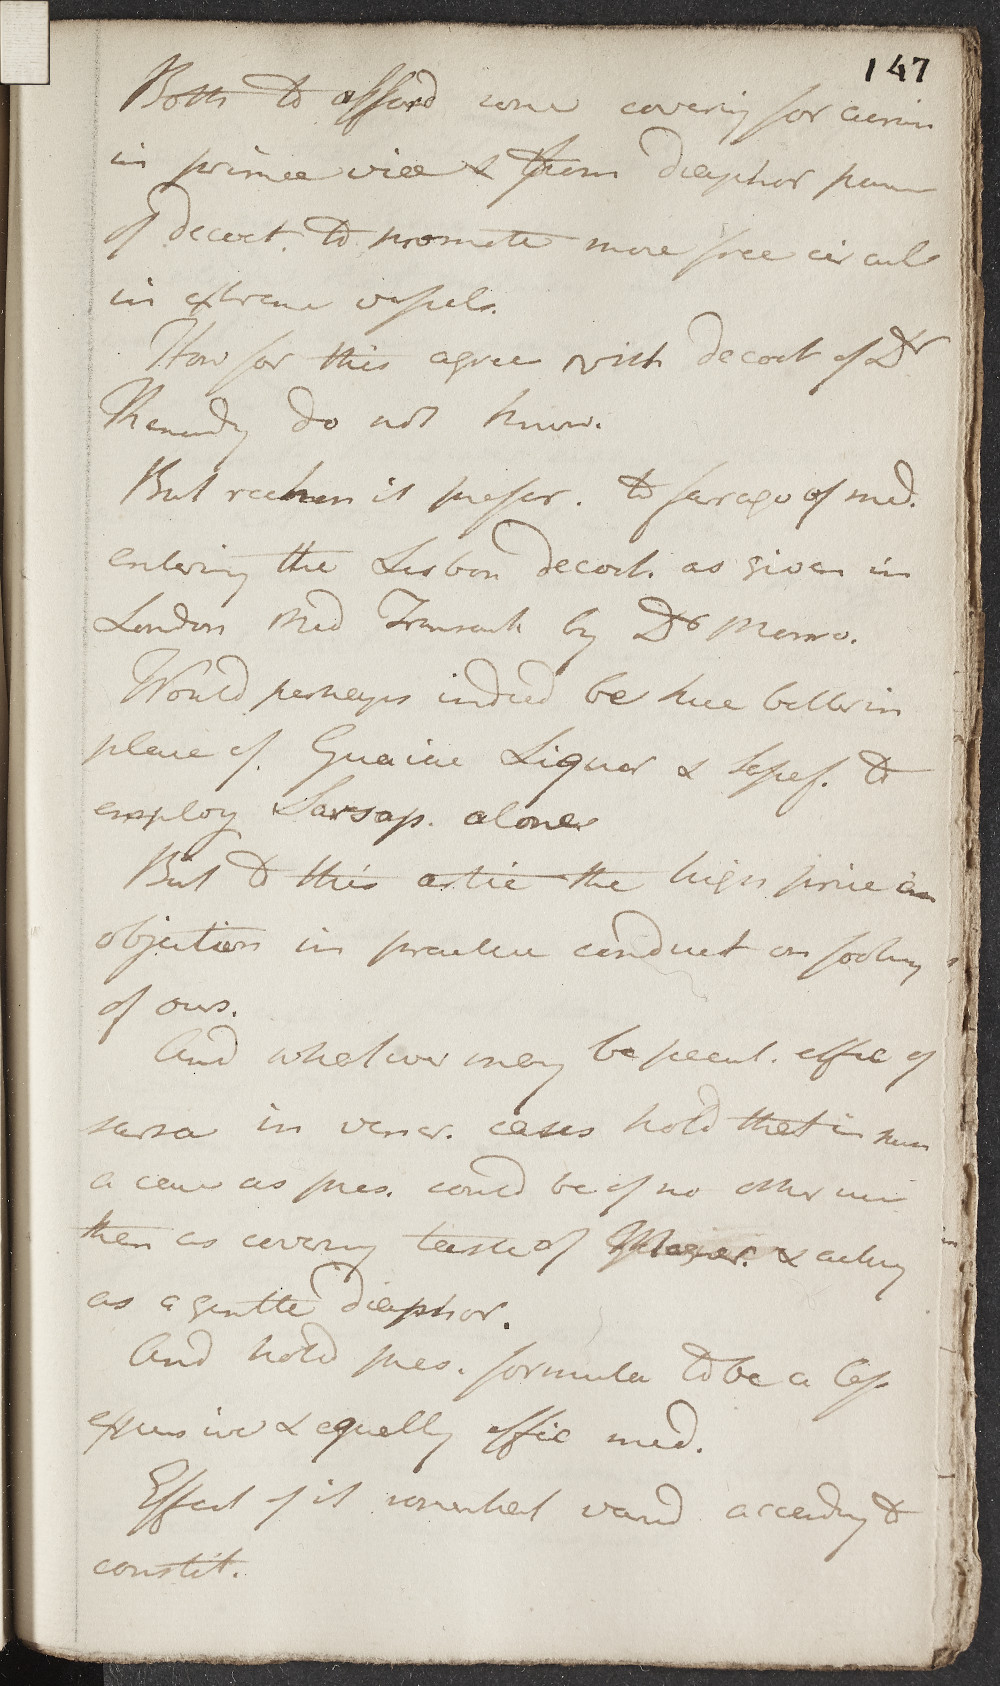 147
Both to afford some covering for acrim
in primae viae & from diaphor power
of decoct. to promote more free circul
in extreme vessels.
How far this agree with decoct of Dr
Kenedy do not know.
But reckon it prefer. to farrago of med.
entering the Lisbon decoct. as given in
London Med Transact by Dr Monro.
Would perhaps indeed be here better in
place of Guaiac Liquor & Sassaf. to
employ Sarsap. alone
But to this as tie the high price an
objection in practice conduct on footing
of ours.
And whatever may be pecul. effic of
sarsa in vener. cases hold that in such
a case as pres. could be of no other use
than as covering taste of & acting
as a gentle diaphor.
And hold pres. formula to be a less
expensive & equally effic med.
Effect of it somewhat varid according to
constit.